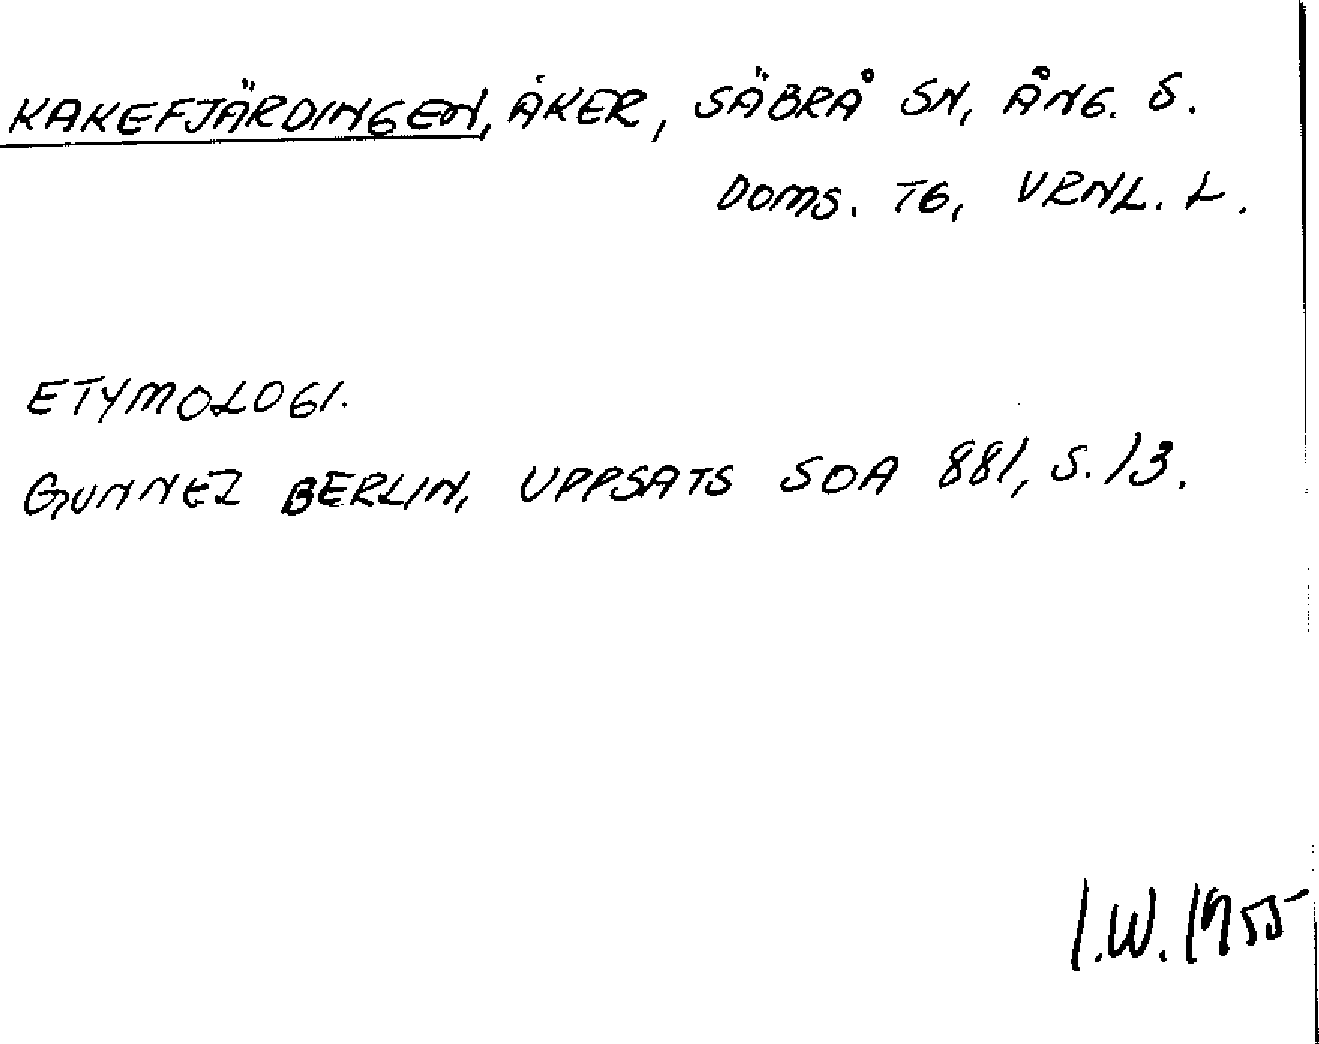 KAKEFJÄRDINGEN, ÅKER, SÄBRÅ SN, ÅNG. S.
DOMS. TG, VRNL. L.
ETYMOLOGI.
GUNNEL BERLIN, UPPSATS SOA 881, S. 13.
I.W. 1955